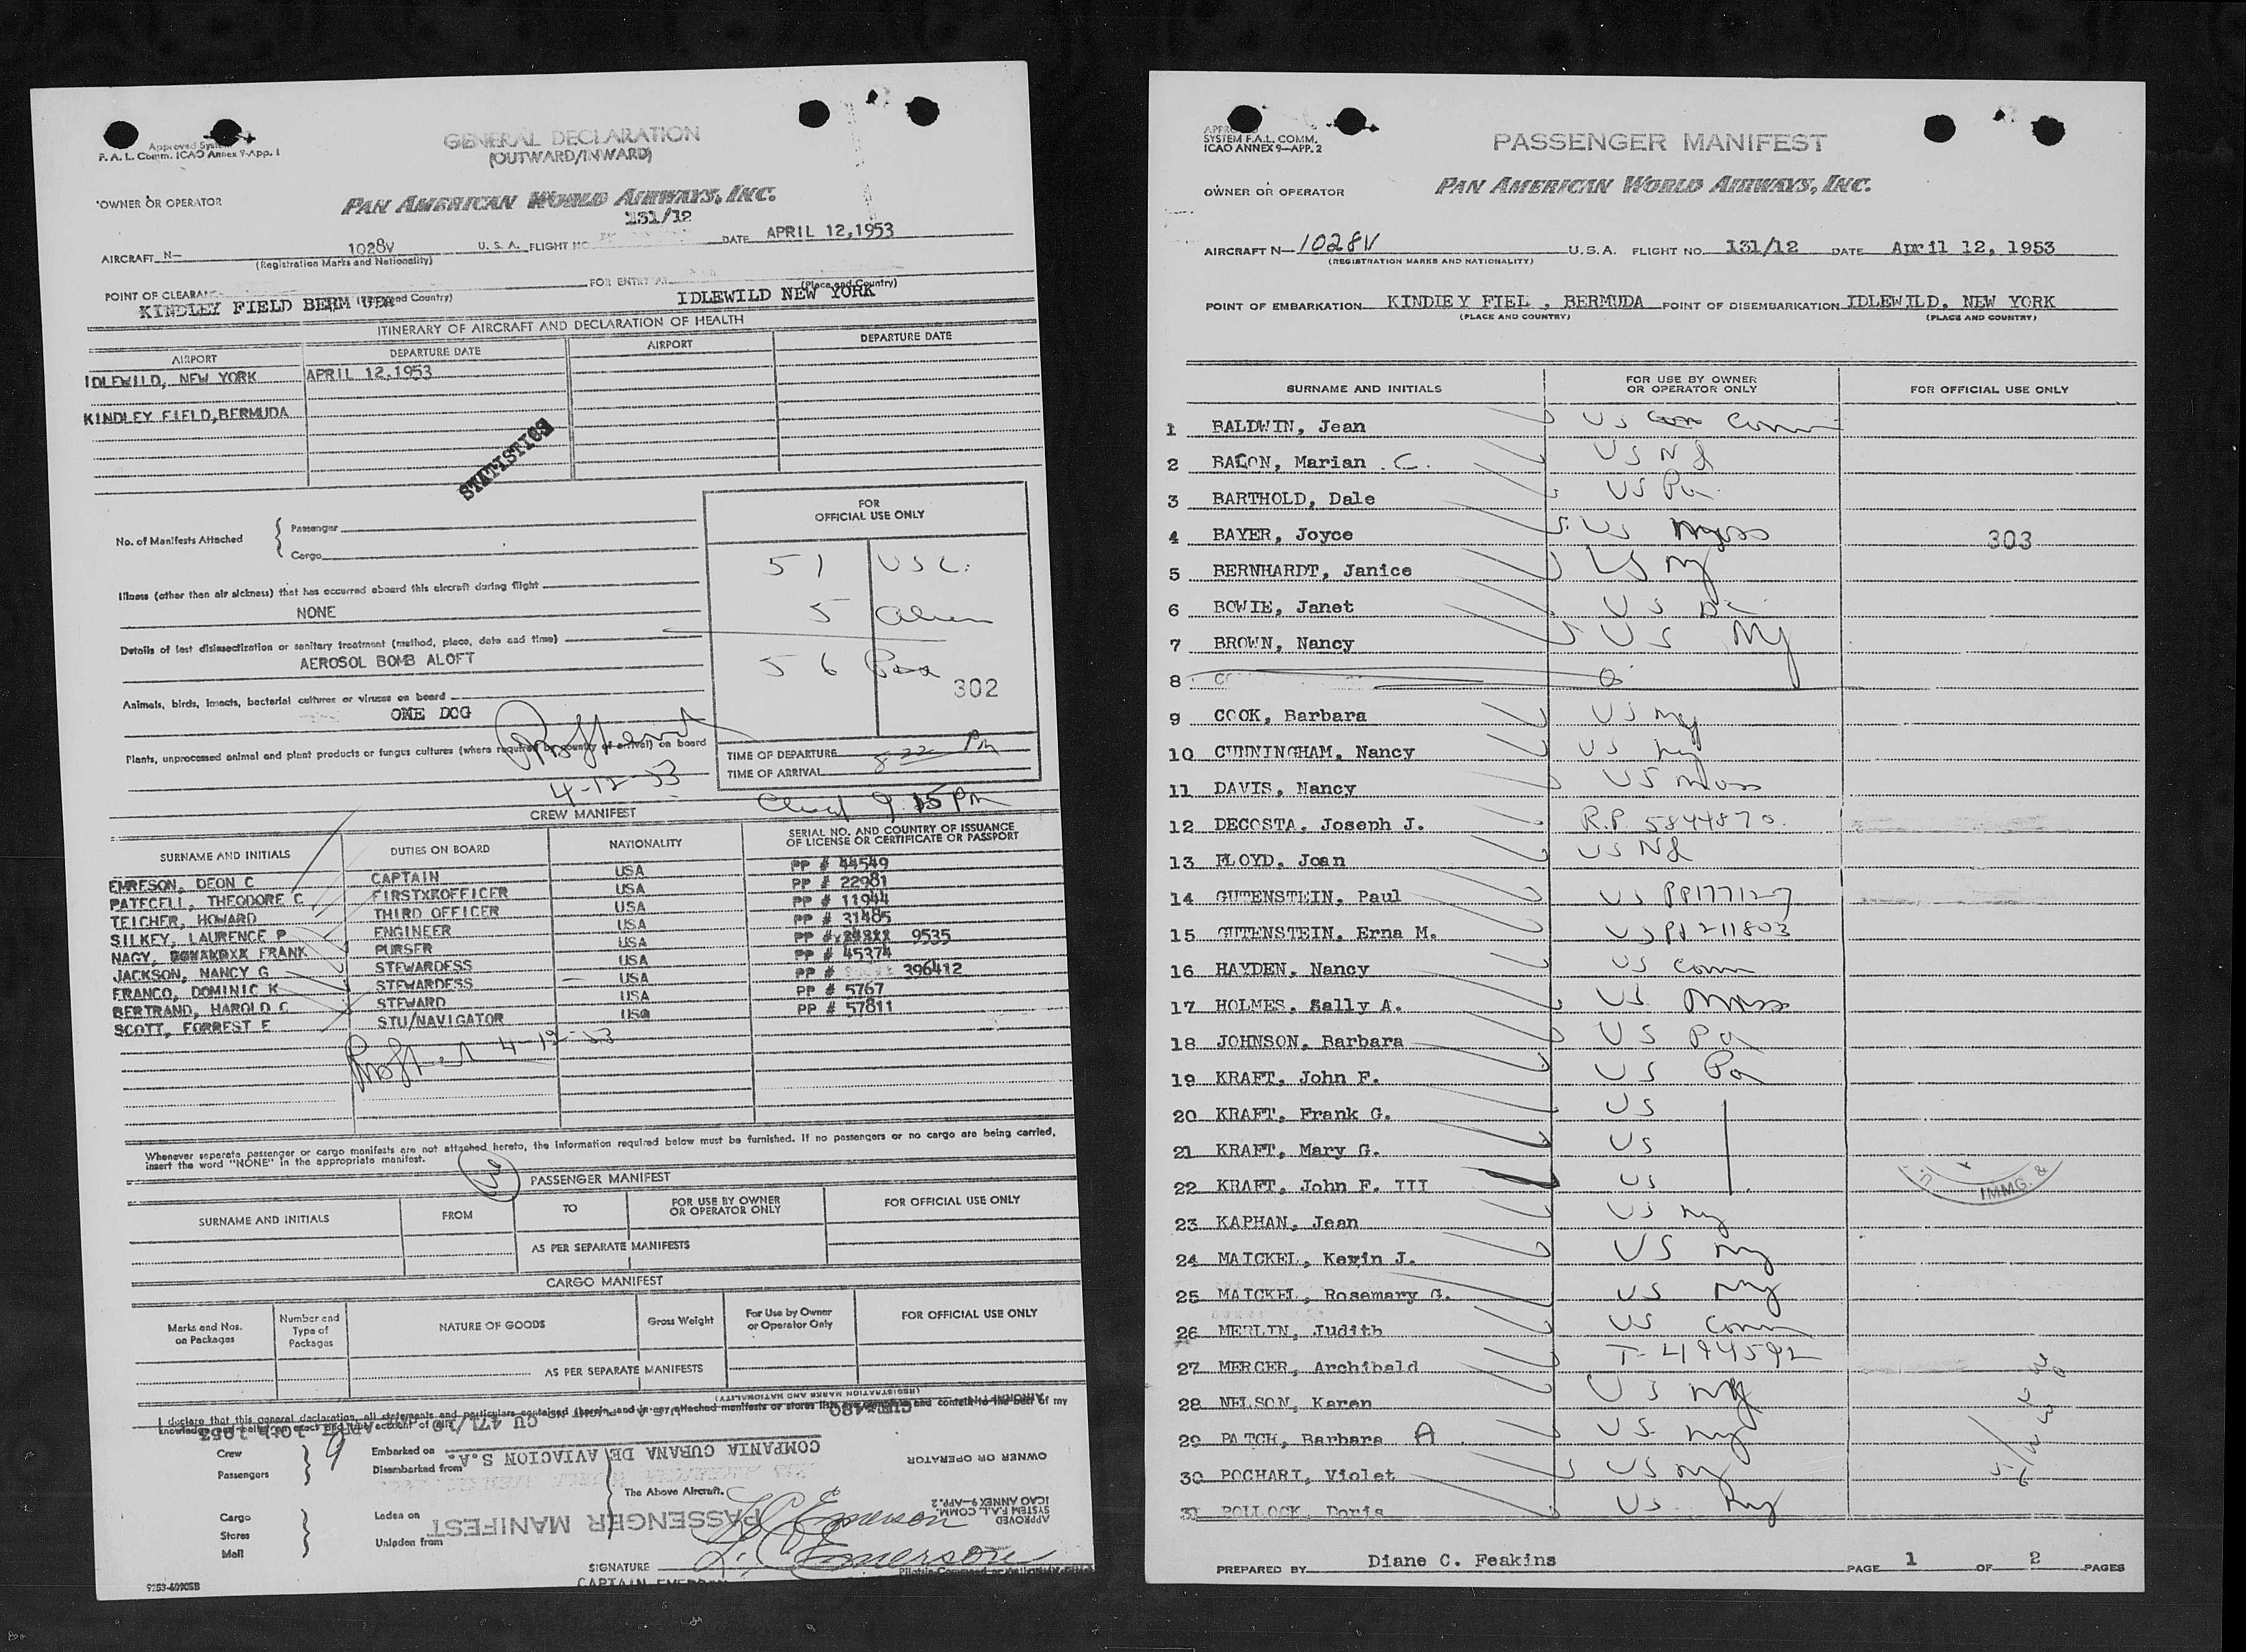 Approved System
F. A. L. Comm. ICAO Annex 9-App. 1
GENERAL DECLARATION
(OUTWARD/INWARD)
OWNER OR OPERATOR
PAN AMERICAN WORLD AIRWAYS, INC.
131/12
AIRCRAFT N- 1028V U. S. A. FLIGHT NO. DATE APRIL 12,1953
(Registration Marks and Nationality)
POINT OF CLEARANCE FOR ENTRY AT
(Place and Country) (Place and Country)
KINDLEY FIELD BERMUDA IDLEWILD NEW YORK
ITINERARY OF AIRCRAFT AND DECLARATION OF HEALTH
AIRPORT DEPARTURE DATE AIRPORT DEPARTURE DATE
IDLEWILD, NEW YORK APRIL 12,1953
KINDLEY FIELD,BERMUDA
STATISTICS
FOR
OFFICIAL USE ONLY
No. of Manifests Attached
Passenger
Cargo
51 USC.
Illness (other than air sickness) that has occurred aboard this aircraft during flight
NONE
5 alien
Details of last disinsectization or sanitary treatment (method, place, date and time)
AEROSOL BOMB ALOFT
56 Pax
302
Animals, birds, insects, bacterial cultures or viruses on board
ONE DOG
Plants, unprocessed animal and plant products or fungus cultures (where required by country of arrival) on board
4-12-53
TIME OF DEPARTURE
TIME OF ARRIVAL 8 22 Pm
9 15 Pm
CREW MANIFEST
SURNAME AND INITIALS DUTIES ON BOARD NATIONALITY SERIAL NO. AND COUNTRY OF ISSUANCE
OF LICENSE OR CERTIFICATE OR PASSPORT
EMRESON, DEON C CAPTAIN USA PP # 44549
PATECELL, THEODORE C FIRSTXROFFICER USA PP # 22981
TEICHER, HOWARD THIRD OFFICER USA PP # 11944
SILKEY, LAURENCE P ENGINEER USA PP # 31485
NAGY, FRANK PURSER USA PP # 9535
JACKSON, NANCY G STEWARDESS USA PP # 45374
FRANCO, DOMINIC K STEWARDESS USA PP # 396412
BERTRAND, HAROLD C STEWARD USA PP # 5767
SCOTT, FORREST E STU/NAVIGATOR USA PP # 57811
4-12-53
Whenever separate passenger or cargo manifests are not attached hereto, the information required below must be furnished. If no passengers or no cargo are being carried,
insert the word "NONE" in the appropriate manifest.
PASSENGER MANIFEST
SURNAME AND INITIALS FROM TO FOR USE BY OWNER
OR OPERATOR ONLY FOR OFFICIAL USE ONLY
AS PER SEPARATE MANIFESTS
CARGO MANIFEST
Marks and Nos.
on Packages Number and
Type of
Packages NATURE OF GOODS Gross Weight For Use by Owner
or Operator Only FOR OFFICIAL USE ONLY
AS PER SEPARATE MANIFESTS
(REGISTRATION MARKS AND NATIONALITY)
I declare that this general declaration, all statements and particulars contained therein, and in any attached manifests or stores lists are complete and contain to the best of my
knowledge and belief an exact and true account of this
CU 471/10 APRIL 10th 1953
Crew 9 Embarked on
Passengers Disembarked from
COMPANIA CUBANA DE AVIACION S.A.
OWNER OR OPERATOR
The Above Aircraft.
APPROVED
SYSTEM F.A.L. COMM.
ICAO ANNEX 9-APP. 2
PASSENGER MANIFEST
Cargo Laden on
Stores
Mail Unladen from
L. C. Emerson
L. C. Emerson
SIGNATURE
CAPTAIN EMERSON
9253-60905B
APPROVED
SYSTEM F.A.L. COMM.
ICAO ANNEX 9-APP. 2
PASSENGER MANIFEST
OWNER OR OPERATOR PAN AMERICAN WORLD AIRWAYS, INC.
AIRCRAFT N- 1028V U.S.A. FLIGHT NO. 131/12 DATE April 12, 1953
(REGISTRATION MARKS AND NATIONALITY)
POINT OF EMBARKATION KINDLEY FIEL , BERMUDA POINT OF DISEMBARKATION IDLEWILD, NEW YORK
(PLACE AND COUNTRY) (PLACE AND COUNTRY)
SURNAME AND INITIALS FOR USE BY OWNER
OR OPERATOR ONLY FOR OFFICIAL USE ONLY
1 BALDWIN, Jean US Conn
2 BACON, Marian C. US NJ
3 BARTHOLD, Dale US Pa.
4 BAYER, Joyce US Mass 303
5 BERNHARDT, Janice US Ny
6 BOWIE, Janet US DC
7 BROWN, Nancy US Ny
8
9 COOK, Barbara US Ny
10 CUNNINGHAM, Nancy US Ny
11 DAVIS, Nancy US Mass
12 DECOSTA, Joseph J. R.P. 5844870.
13 FLOYD, Joan US NJ
14 GUTENSTEIN, Paul US PP177127
15 GUTENSTEIN, Erna M. US PP 211803
16 HAYDEN, Nancy US Conn
17 HOLMES, Sally A. US. Mass
18 JOHNSON, Barbara US Pa
19 KRAFT, John F. US Pa
20 KRAFT, Frank G. US
21 KRAFT, Mary G. US
22 KRAFT, John F. III US
IMMG. &
23 KAPHAN, Jean US Ny
24 MAICKEL, Kevin J. US Ny
25 MAICKEL, Rosemary G. US Ny
26 MERLIN, Judith US Conn
27 MERCER, Archibald T-494592
28 NELSON, Karen US Ny
29 PATCH, Barbara A. US. Ny
30 POCHARI, Violet US Ny
31 POLLOCK, Doris US Ny
PREPARED BY Diane C. Feakins PAGE 1 OF 2 PAGES